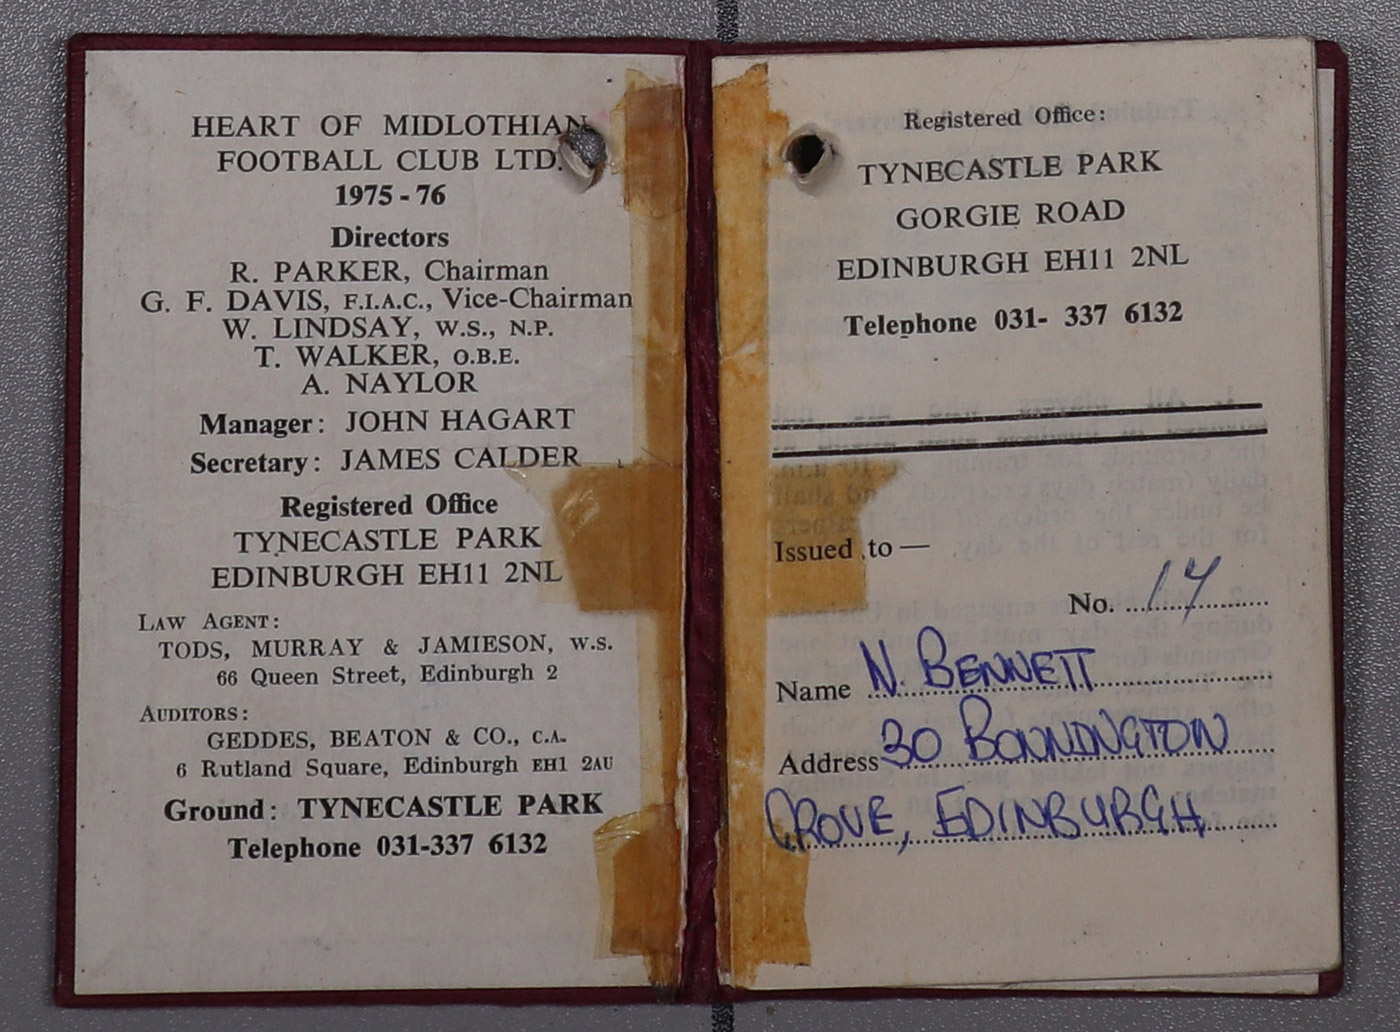 HEART OF MIDLOTHIAN
FOOTBALL CLUB LTD.
1975 - 76
Directors
R. PARKER, Chairman
G. F. DAVIS, F.I.A.C., Vice-Chairman
W. LINDSAY, W.S., N.P.
T. WALKER, O.B.E.
A. NAYLOR
Manager: JOHN HAGART
Secretary: JAMES CALDER
Registered Office
TYNECASTLE PARK
EDINBURGH EH11 2NL
LAW AGENT:
TODS, MURRAY & JAMIESON, W.S.
66 Queen Street, Edinburgh 2
AUDITORS:
GEDDES, BEATON & CO., C.A.
6 Rutland Square, Edinburgh EH1 2AU
Ground: TYNECASTLE PARK
Telephone 031-337 6132
Registered Office:
TYNECASTLE PARK
GORGIE ROAD
EDINBURGH EH11 2NL
Telephone 031- 337 6132
Issued to —
No. 14
Name N. BENNETT
Address 30 BONNINGTON
GROVE, EDINBURGH